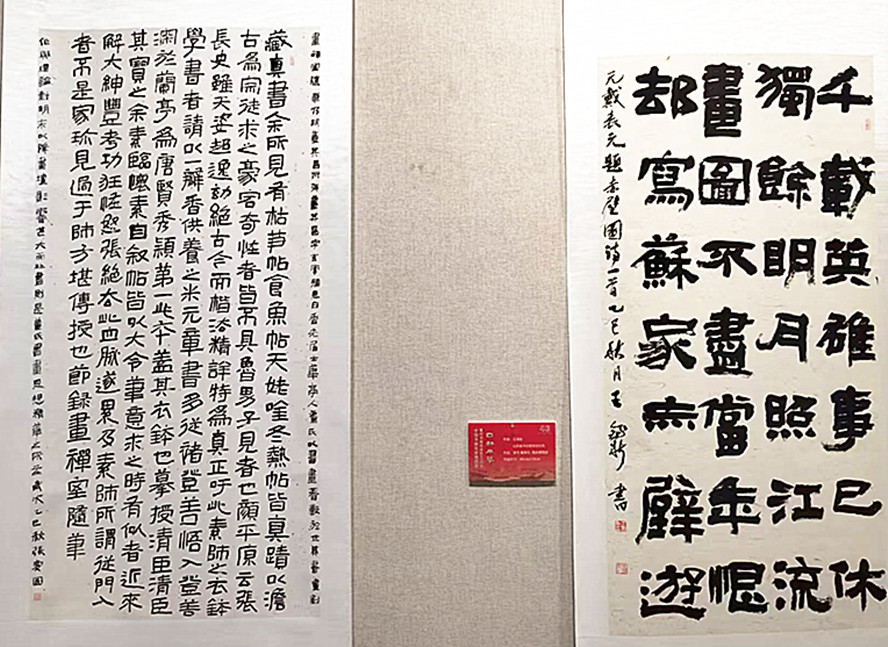 千載英雄事已休
獨餘明月照江流
畫圖不盡當年恨
却寫蘇家赤壁遊
元戴表元題赤壁圖詩一首乙巳秋月王 書
董其昌字玄宰號思白香光居士華亭人董氏以書畫
藏真書余所見有枯笋帖食魚帖天姥吟冬熱帖皆真蹟以澹
古為宗徒求之豪宕奇怪者皆不具魯男子見者也顏平原云張
長史雖天姿超逸妙絕古今而楷法精詳特為真正吁此素師之衣鉢
學書者請以一瓣香供養之米元章書多從褚登善悟入登善
深於蘭亭為唐賢秀穎第一此本蓋其衣鉢也摹授清臣清臣
其寶之余素臨懷素自叙帖皆以大令筆意求之時有似者近來
解大紳豐考功狂怪怒張絕去此血脈遂累及素師所謂從門入
者不是家珍見過于師方堪傳授也節錄畫禪室隨筆
乙巳秋張